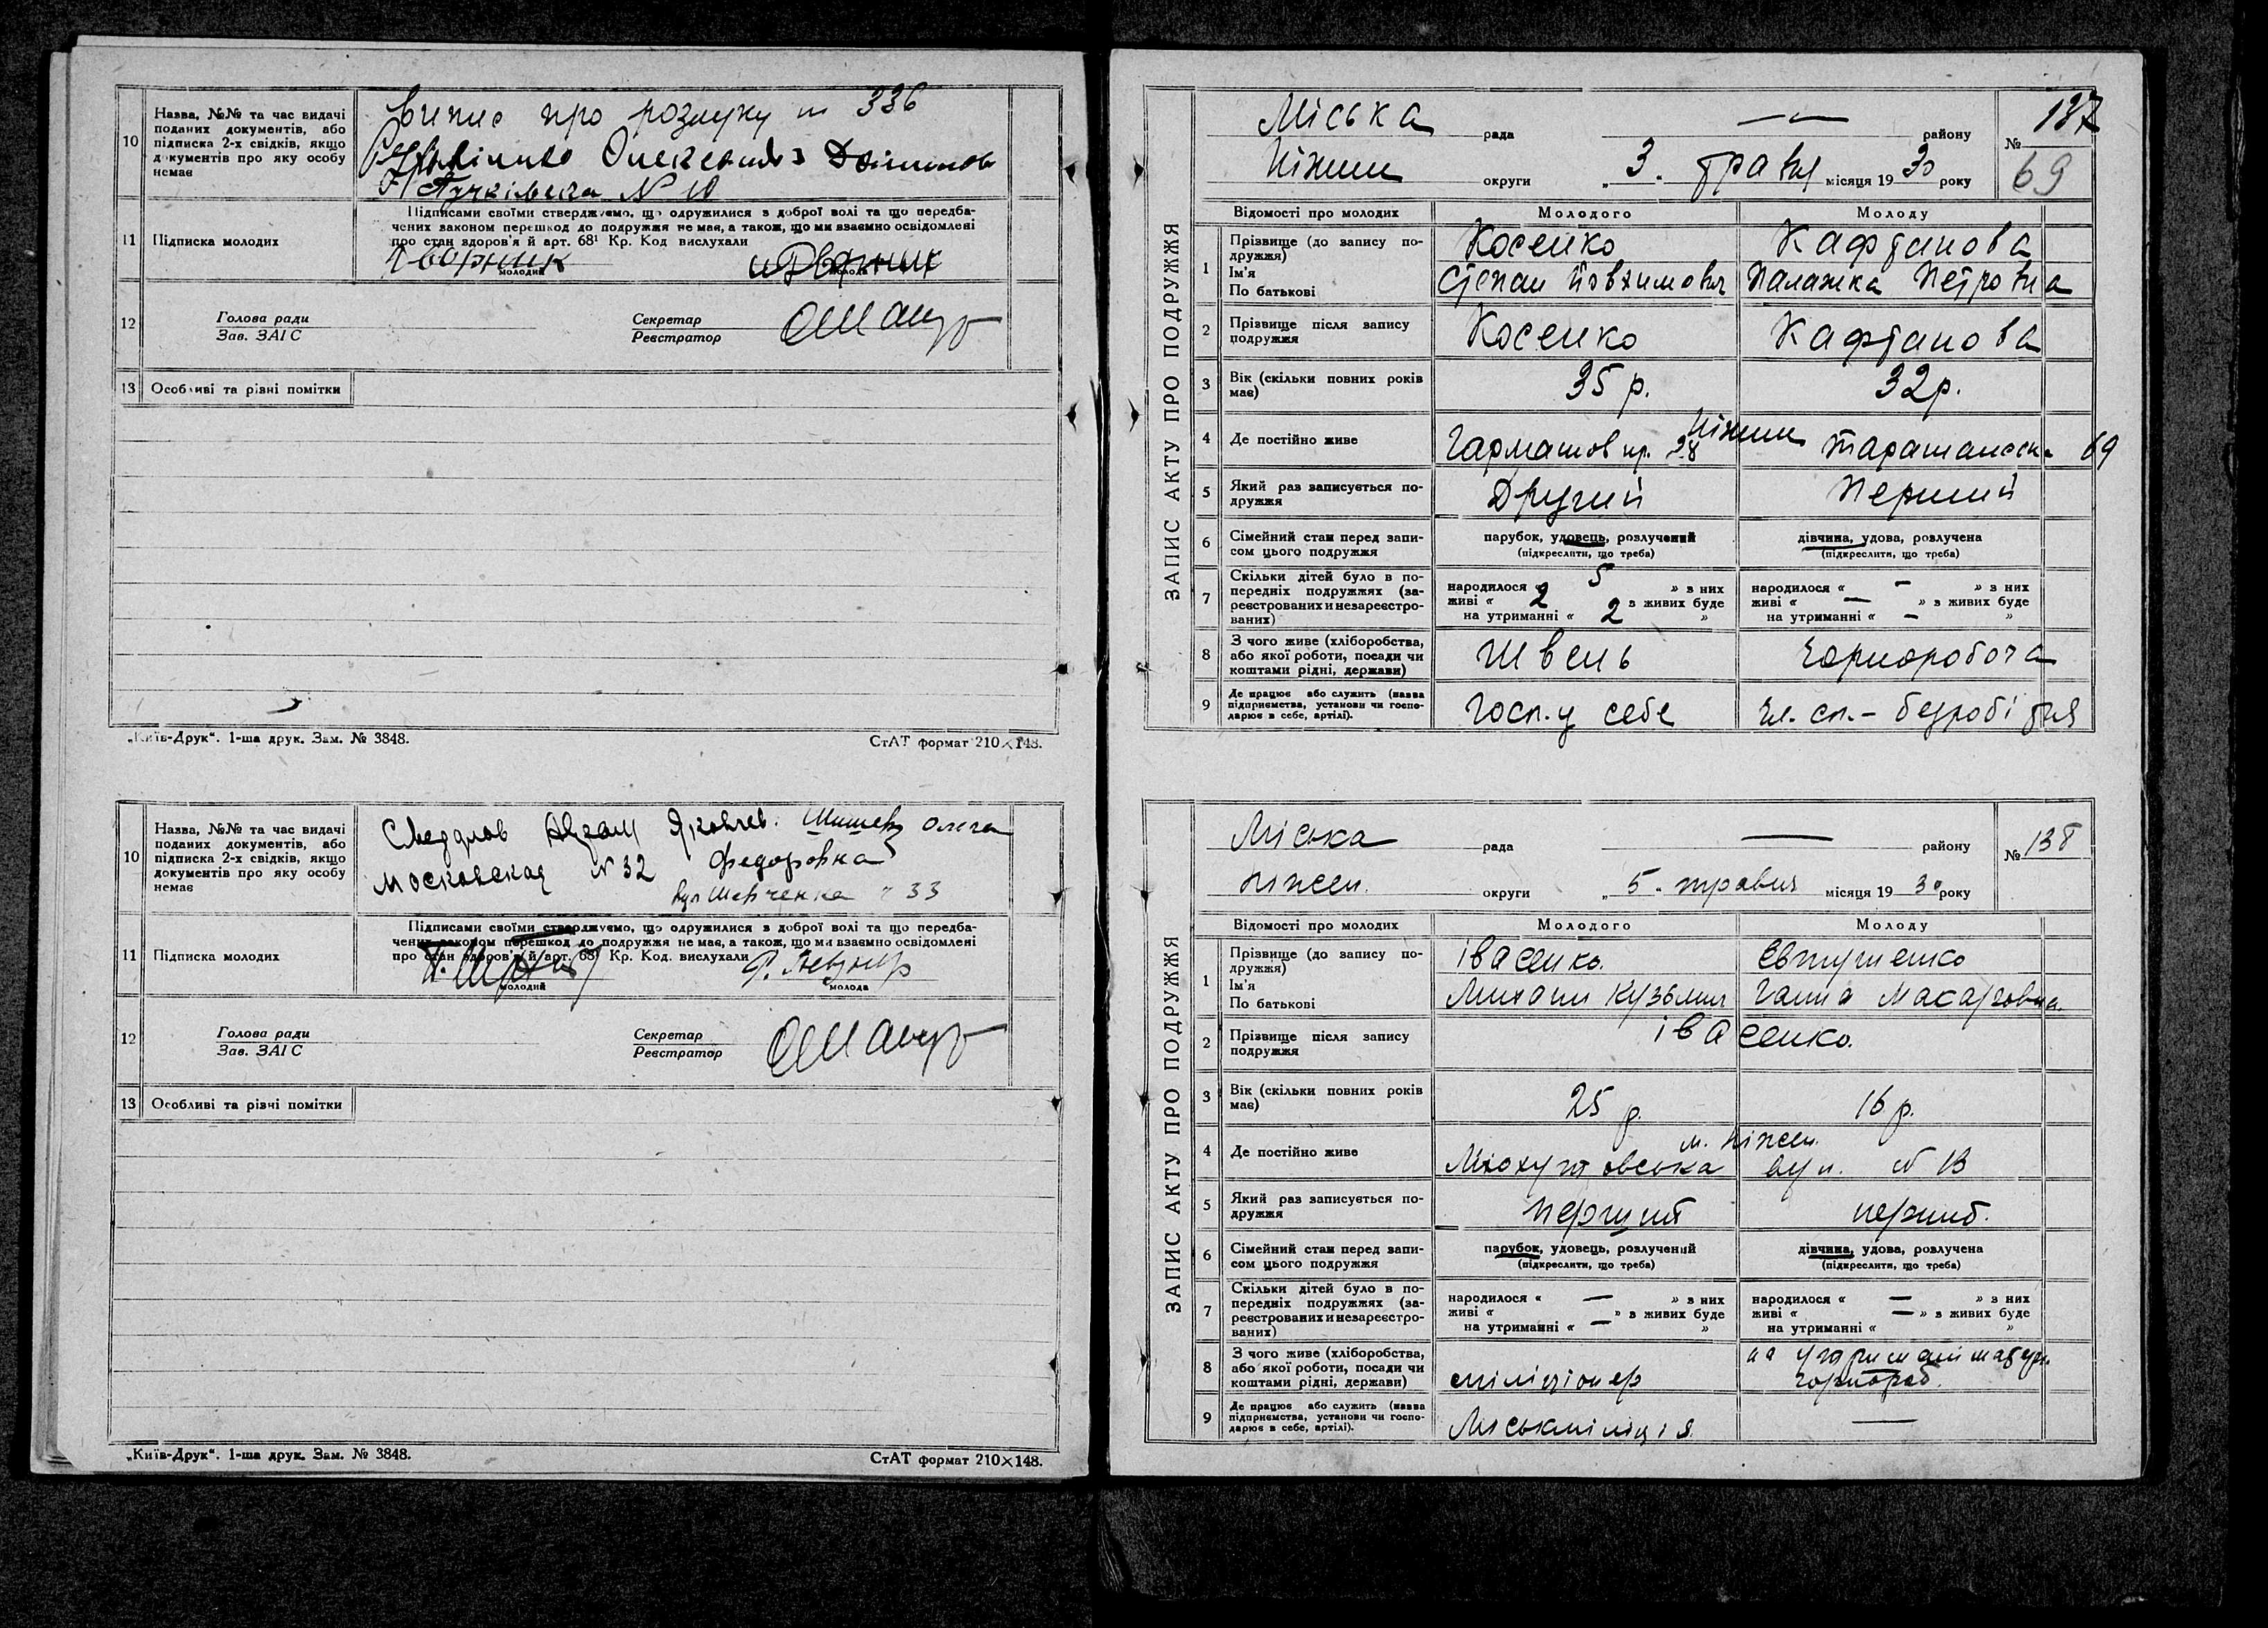 10
Назва, №№ та час видачі
поданих документів, або
підписка 2-х свідків, якщо
документів про яку особу
немає
Випис про розлуку № 336
Олександ
№ 10
11
Підписка молодих
Підписами своїми стверджуємо, що одружилися з доброї волі та що передба-
чених законом перешкод до подружжя не має, а також, що ми взаємно освідомлені
про стан здоров'я й арт. 68¹ Кр. Код вислухали
Дворник
Дворник
молодий
молода
12
Голова ради
Зав. ЗАГС
Секретар
Реєстратор
13
Особливі та різні помітки
„Київ-Друк“. 1-ша друк. Зам. № 3848.
СтАТ формат 210×148.
10
Назва, №№ та час видачі
поданих документів, або
підписка 2-х свідків, якщо
документів про яку особу
немає
Свердлов Яковлев. Ольга
Московская № 32 Федоровна
вул Шевченка 33
11
Підписка молодих
Підписами своїми стверджуємо, що одружилися з доброї волі та що передба-
чених законом перешкод до подружжя не має, а також, що ми взаємно освідомлені
про стан здоров'я й арт. 68¹ Кр. Код. вислухали
молодий
молода
12
Голова ради
Зав. ЗАГС
Секретар
Реєстратор
13
Особливі та різні помітки
„Київ-Друк“. 1-ша друк. Зам. № 3848.
СтАТ формат 210×148.
ЗАПИС АКТУ ПРО ПОДРУЖЖЯ
Міська рада — району
№ 137
Ніжин округи „3. травн місяця 1930 року
69
Відомості про молодих
Молодого
Молоду
1
Прізвище (до запису по-
дружжя)
Ім'я
По батькові
Косенко
Кафтанова
Степан Йовхимович
Палажка Петровна
2
Прізвище після запису
подружжя
Косенко
Кафтанова
3
Вік (скільки повних років
має)
35 р.
32 р.
4
Де постійно живе
Ніжин
Гармашов пр. 28
Таращанськ 69
5
Який раз записується по-
дружжя
Другий
Перший
6
Сімейний стан перед запи-
сом цього подружжя
парубок, удовець, розлучений
(підкреслити, що треба)
дівчина, удова, розлучена
(підкреслити, що треба)
7
Скільки дітей було в по-
передніх подружжях (за-
реєстрованих и незареєстро-
ваних)
народилося « 5 » з них
живі « 2 » з живих буде
на утриманні « 2 »
народилося « — » з них
живі « — » з живих буде
на утриманні « — »
8
З чого живе (хліборобства,
або якої роботи, посади чи
коштами рідні, держави)
Швець
Чорноробоча
9
Де працює або служить (назва
підприємства, установи чи госпо-
дарює в себе, артілі).
Госп. у себе
Чл. сп. - безробітня
ЗАПИС АКТУ ПРО ПОДРУЖЖЯ
Міська рада — району
№ 138
Ніжен. округи „5. травня місяця 1930 року
Відомості про молодих
Молодого
Молоду
1
Прізвище (до запису по-
дружжя)
Ім'я
По батькові
Івасенко.
Евтушенко
Михаил Кузьмич
Ганна Макаровна.
2
Прізвище після запису
подружжя
Івасенко.
3
Вік (скільки повних років
має)
25 р.
16 р.
4
Де постійно живе
м. Ніжен.
вул. № 13
5
Який раз записується по-
дружжя
перший
перший.
6
Сімейний стан перед запи-
сом цього подружжя
парубок, удовець, розлучений
(підкреслити, що треба)
дівчина, удова, розлучена
(підкреслити, що треба)
7
Скільки дітей було в по-
передніх подружжях (за-
реєстрованих и незареєстро-
ваних)
народилося « — » з них
живі « » з живих буде
на утриманні « — »
народилося « — » з них
живі « — » з живих буде
на утриманні « »
8
З чого живе (хліборобства,
або якої роботи, посади чи
коштами рідні, держави)
міліціонер
на утриманні
чорнороб.
9
Де працює або служить (назва
підприємства, установи чи госпо-
дарює в себе, артілі).
Міськміліція
—